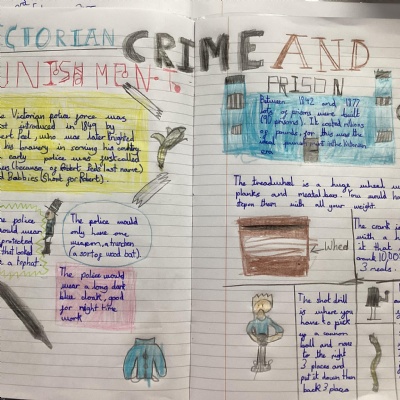 VICTORIAN CRIME AND
PUNISHMENT.
PRISON
Victorian police force was
introduced in 1849 by
Peel who was later knighted
his bravery in serving his country
early police was just called
(because of Robert Peels last name)
Bobbies (Short for Robert).
police
would wear
protected
that looked
a tophat.
The police would
only have one
weapon, a truncheon
(a sort of wood bat).
The police would
wear a long dark
blue cloak, good
for night time
work
Between 1842 and 1877
lots of prisons were built
(90 prisons). It costed millions
of pounds, for this was the
usual punishment in the Victorian
era.
The treadwheel is a huge wheel
planks and metal bars. You would
step on them with all your weight.
Wheel
The crank is
with a
it that
crank 10,000
3 meals.
The shot drill
is where you
have to pick
up a cannon
ball and move
to the right
3 places and
put it down then
back 3 places